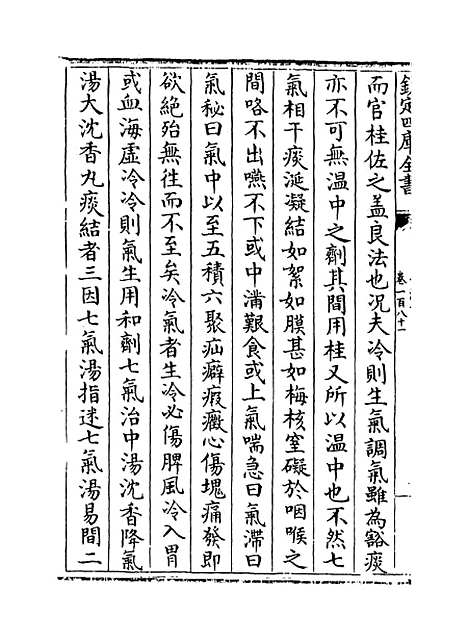 欽定四庫全書
卷一百八十一
而官桂佐之蓋良法也况夫冷則生氣調氣雖為豁痰
亦不可無温中之劑其間用桂又所以温中也不然七
氣相干痰涎凝結如絮如膜甚如梅核窒礙於咽喉之
間咯不出嚥不下或中滿艱食或上氣喘急曰氣滯曰
氣秘曰氣中以至五積六聚疝癖瘕癥心傷塊痛發即
欲絶殆無徃而不至矣冷氣者生冷必傷脾風冷入胃
或血海虚冷冷則氣生用和劑七氣治中湯沈香降氣
湯大沈香丸痰結者三因七氣湯指迷七氣湯易簡二